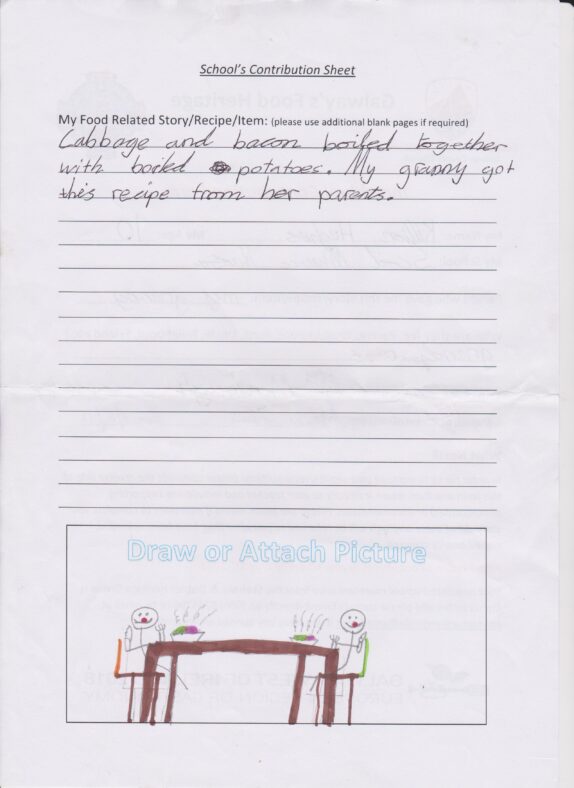 School's Contribution Sheet
My Food Related Story/Recipe/Item: (please use additional blank pages if required)
Cabbage and bacon boiled together
with boiled potatoes. My granny got
this recipe from her parents.
Draw or Attach Picture